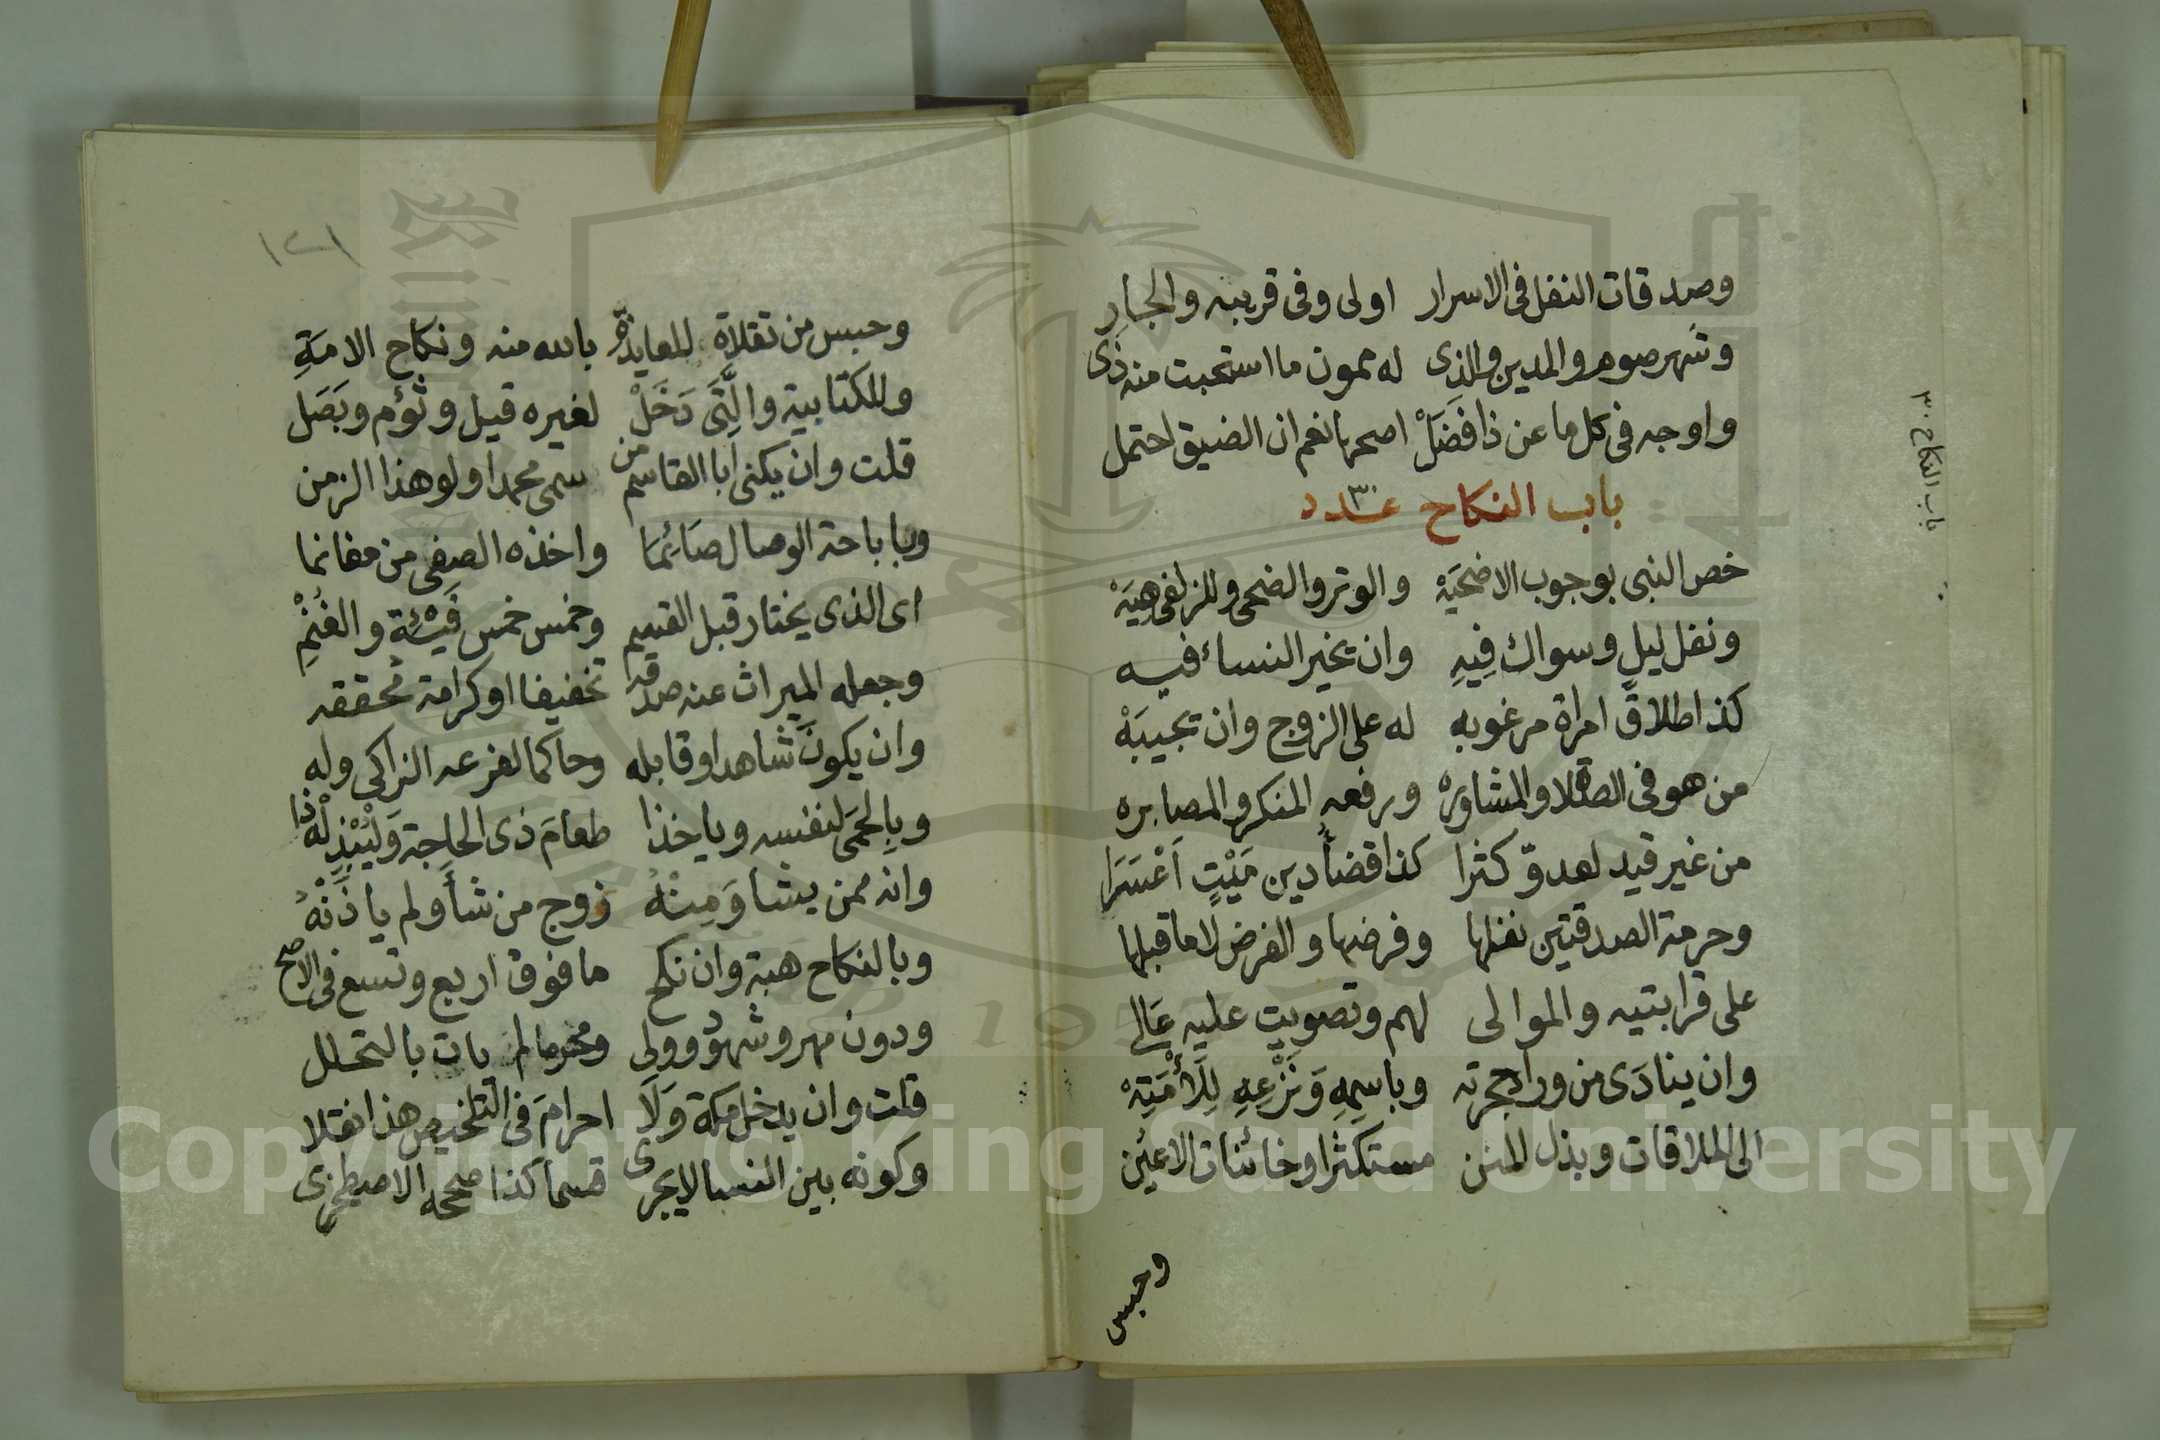 وصدقات النفل في الاسرار اولى وفى قريبه والجار
وشهر صوم والمدين والذى له ممون ما استحبت منه ذى
واوجه فى كل ما عن ذا فضل اصحها نعم ان الضيق احتمل
باب النكاح عدد ٣٠
باب النكاح ٣٠
خص النبى بوجوب الاضحيه والوتر والضحى وللزلفى هيه
ونفل ليل وسواك فيه وان يخير النساء فيه
كذا طلاق امراة مرغوبه له على الزوج وان تجيبه
من هو فى الصلاة والمشاوره ورفعه المنكر والمصابره
من غير قيد لعدو كثرا كذا قضا دين ميت اعسرا
وحرمة الصدقتين نفلها وفرضها والفرض لا ما قبلها
على قرابتيه والموالى لهم وتصويت عليه عالى
وان ينادى من ورا حجرته وباسمه ونزعه للأمته
الى الملاقات وبذل المنن مستكثرا وخائنات الاعين
وحبس
١٢١
وحبس من تقلاه للعايذة بالله منه ونكاح الامة
وللكتابية والتى دخل لغيره قيل وثوم وبصل
قلت وان يكنى ابا القاسم من سمى محمدا ولو هذا الزمن
وباباحة الوصال صائما واخذه الصفى من مغانما
اى الذى يختار قبل القسم وخمس خمس فيئه والغنم
وجعله الميراث عنه صدقه تخفيفا او كرامة محققه
وان يكون شاهدا وقابله وحاكما لفرعه الزاكى وله
وبالحمى لنفسه وياخذا طعام ذى الحاجة وليبذله ذا
وانه ممن يشا ومنه زوج من شا ولم ياذنه
وبالنكاح هبة وان نكح ما فوق اربع وتسع فى الاصح
ودون مهر وشهود وولى ومحرما لم يات بالتحلل
قلت وان يدخل مكة ولا احرام فى التلخيص هذا نقلا
وكونه بين النسا لا يجرى قسما كذا صححه الاصطخرى
Copyright © King Saud University